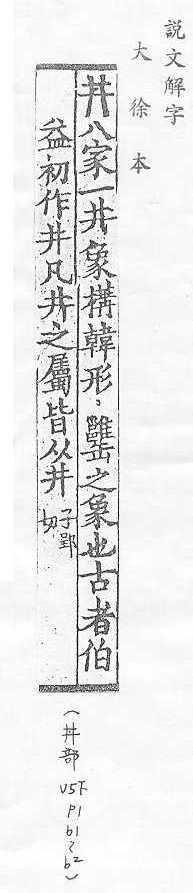 説文解字
大徐本
丼八家一丼象構韓形、𦉥之象也古者伯
益初作井凡井之屬皆从井子郢切
(丼部 V5下 P1 b1~b2)